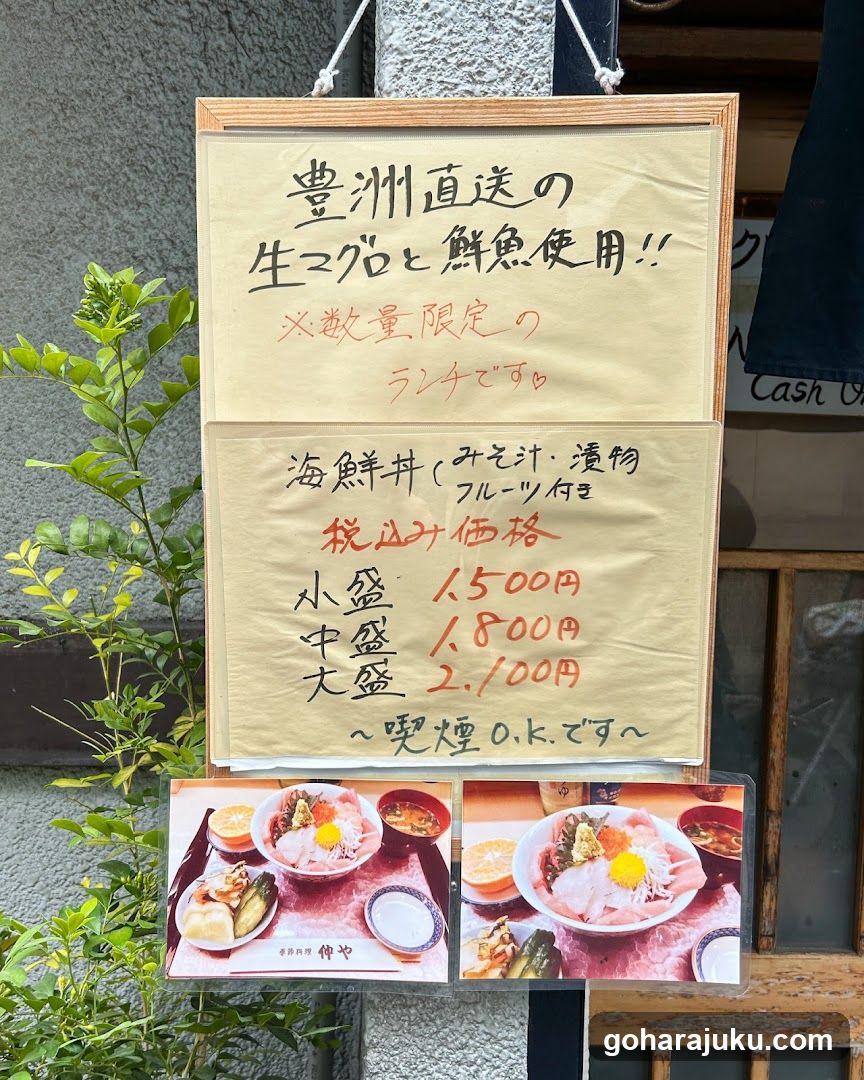 豊洲直送の
生マグロと鮮魚使用!!
※数量限定の
ランチです♡
海鮮丼(みそ汁・漬物
フルーツ付き
税込み価格
小盛 1,500円
中盛 1,800円
大盛 2,100円
~喫煙O.K.です~
Cash
季節料理 仲や
goharajuku.com